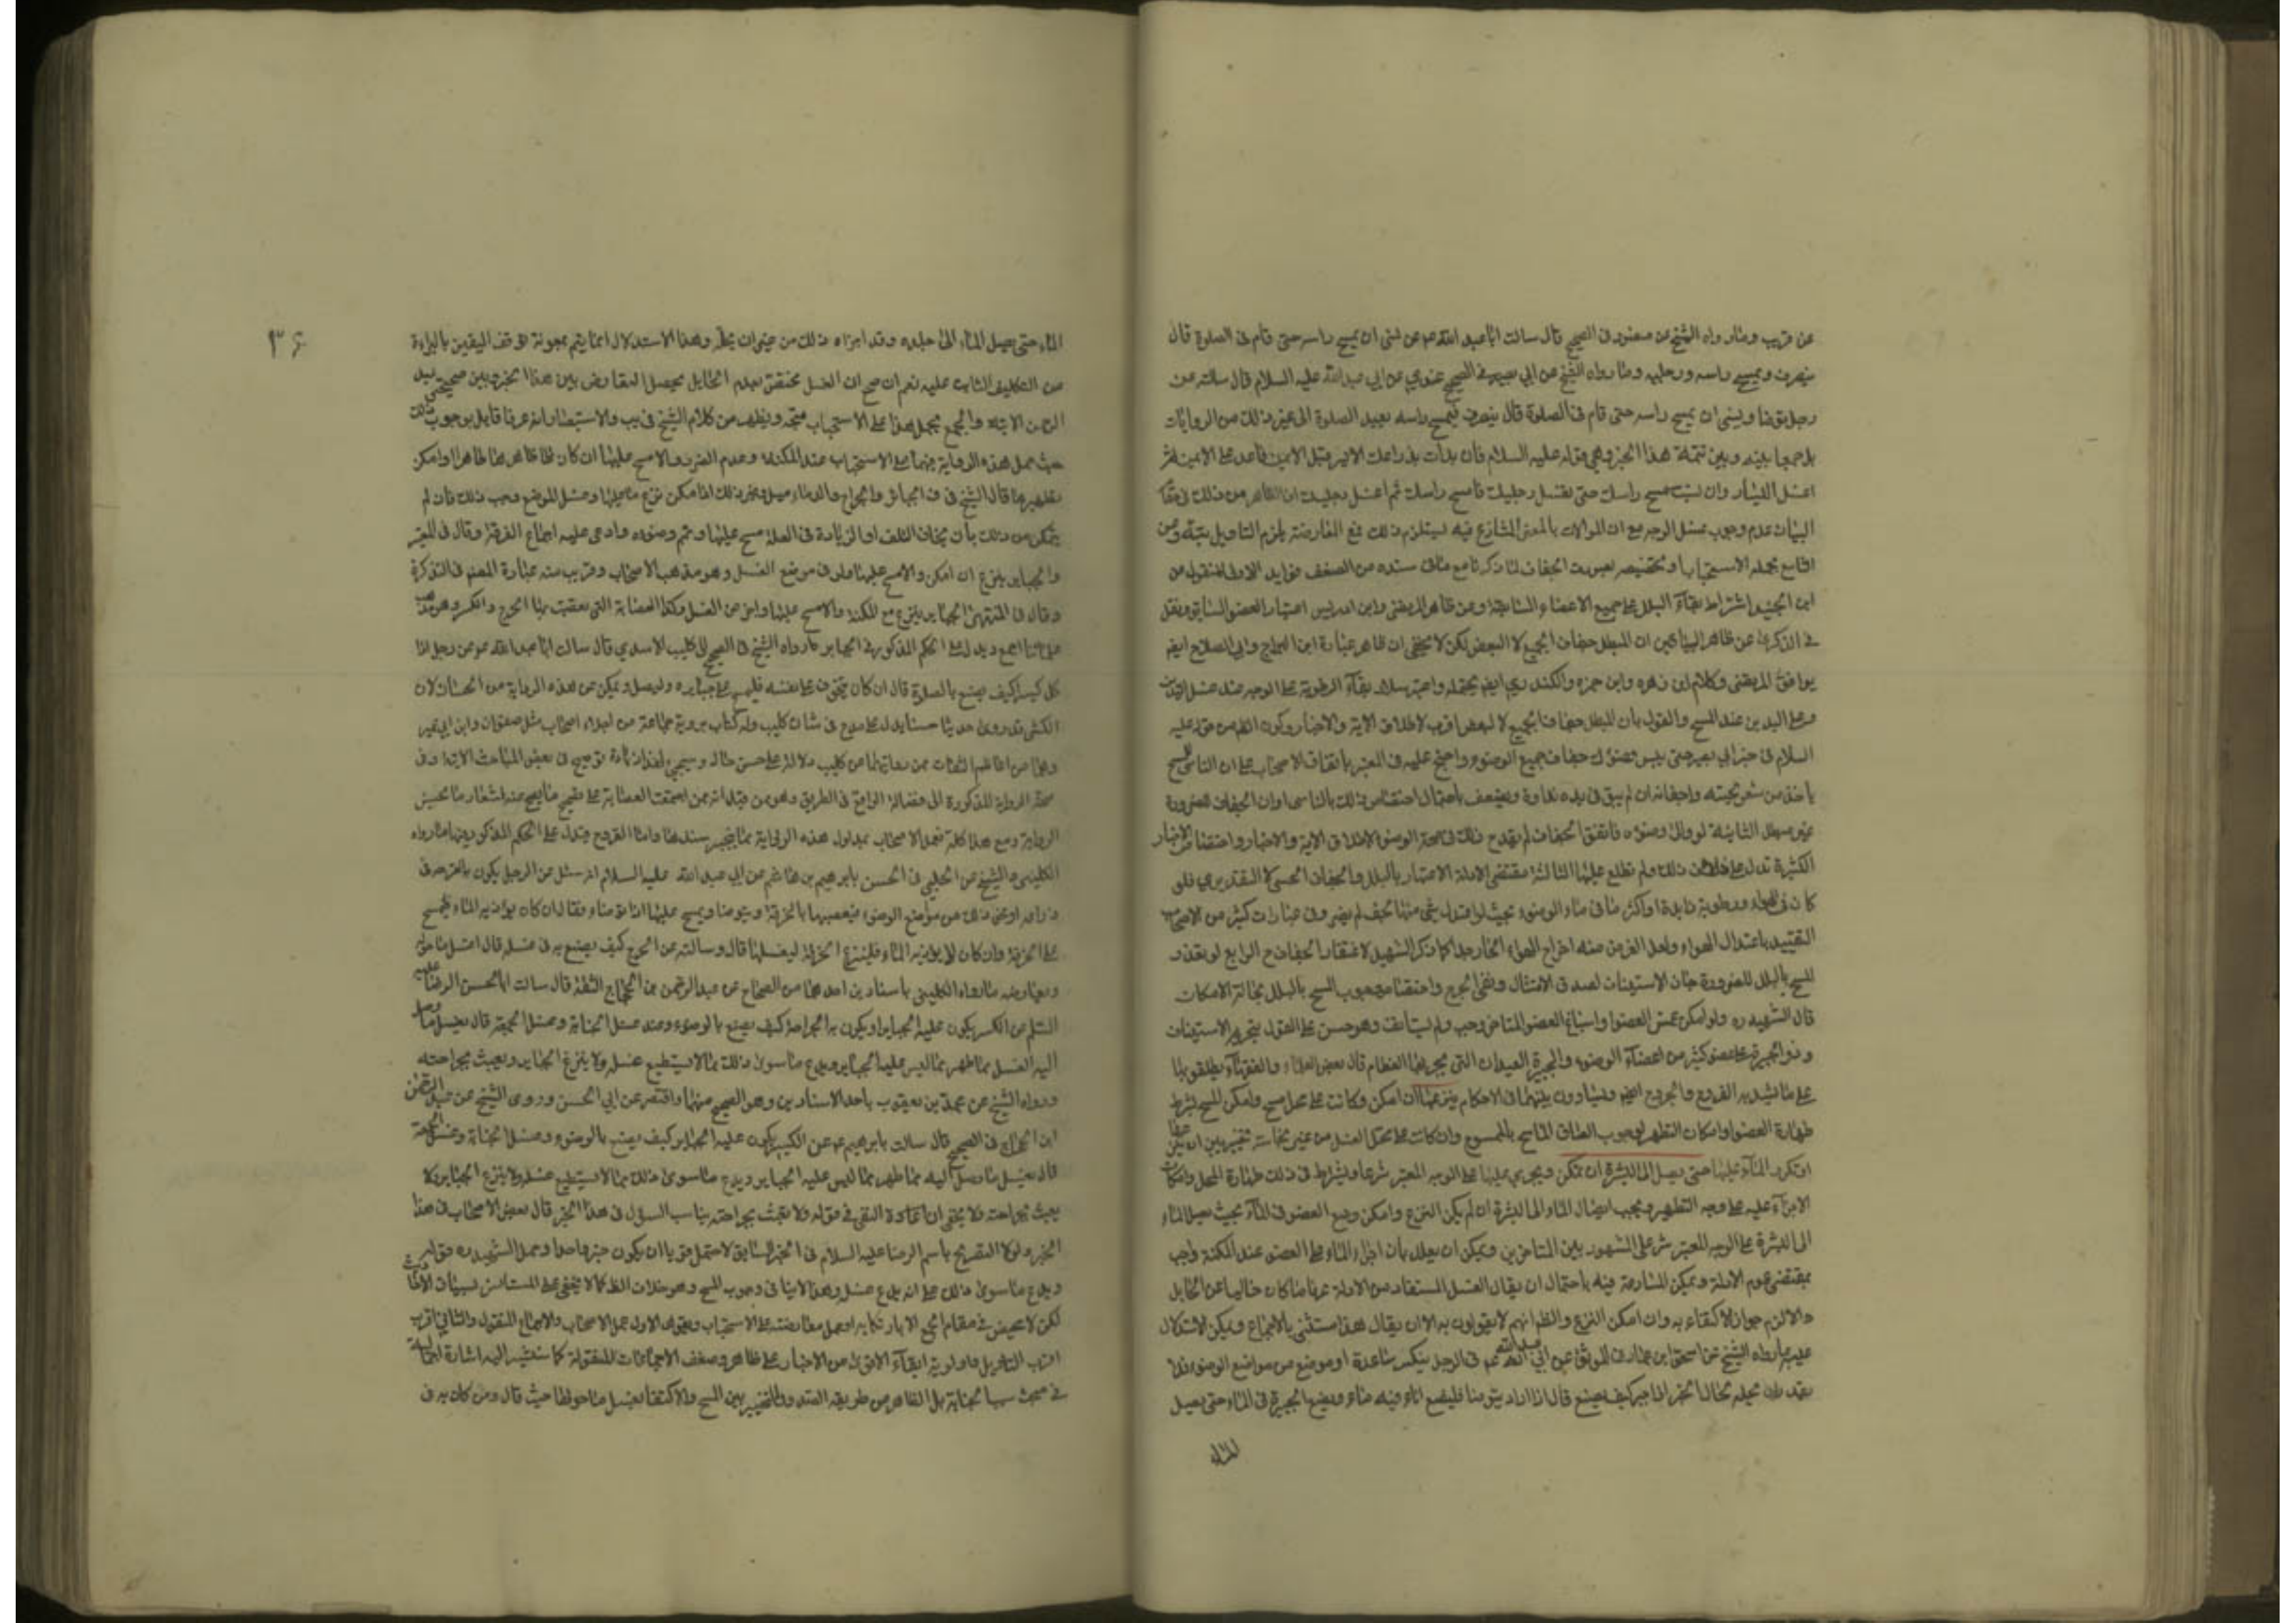 عن قريب وما رواه الشيخ عن منصور في الصحيح قال سالت ابا عبد الله عم عمن نسي ان يمسح راسه حتى قام في الصلوة قال
ينصرف ويمسح راسه ورجليه وما رواه الشيخ عن ابي بصير في الصحيح عندي عن ابي عبد الله عليه السلام قال سالته عن
رجل توضا ونسي ان يمسح راسه حتى قام في الصلوة قال ينصرف فيمسح راسه يعيد الصلوة الى غير ذلك من الروايات
بينه وبين تتمة هذا الخبر وهي قوله عليه السلام فان بدات بذراعك الايسر قبل الايمن فاعد على الايمن ثم
اغسل اليسار وان نسيت مسح راسك حتى تغسل رجليك فامسح راسك ثم اغسل رجليك الظاهر من ذلك في مقام
البيان عدم وجوب غسل الوجه مع ان الموالات بالمعنى المتنازع فيه يستلزم ذلك فمع المعارضة يلزم التاويل
بحمله الاستحباب او تخصيصه بصورت الجفاف لما ذكر ما مع ما في سنده من الضعف فوايد الاولى المنقول من
ابن الجنيد اشتراط بقاء البلل على جميع الاعضاء السابقة وعن ظاهر المرتضى وابن ادريس اعتبار العضو السابق ونقل
في الذكرى عن ظاهر الباقين ان المبطل جفاف الجميع لا البعض لكن لا يخفى ان ظاهر عبارة ابن البراج وابي الصلاح ايضا
يوافق المرتضى وكلام ابن زهره وابن حمزه والكندري ايض يحتمله واعتبر سلار بقاء الرطوبة على الوجه عند غسل اليدين
وعلى اليدين عند المسح والقول بان المبطل جفاف الجميع لا البعض اقرب لاطلاق الاية والاخبار وكون الظ من قوله عليه
السلام في خبر ابي بصير حتى يبس وضوئك جفاف جميع الوضوء واحتج عليه في المعتبر باتفاق الاصحاب على ان الناسي للمسح
ياخذ من شعر لحيته واجفانه ان لم يبق في يده نداوة ويضعف باحتمال اختصاص ذلك بالناسي وان الجفاف للضرورة
غير مبطل الثانية لو والى وضوءه فاتفق الجفاف لم يقدح ذلك في صحة الوضوء لاطلاق الاية والاخبار واختصاص الاخبار
الكثيرة تدل على خلاف ذلك ولم نطلع عليها الثالثة مقتضى الادلة الاعتبار بالبلل والجفاف الحسي لا التقديري فلو
كان في الهواء رطوبة او اكثر ما في ماء الوضوء بحيث لو اعتدل شي منهما لجف لم يضر وفي عبارات كثير من الاصحاب
التقييد باعتدال الهواء ولعل الغرض منه اخراج الهواء الحار جدا كما ذكر الشهيد لاغتفار الجفاف ح الرابع لو تعذر
المسح بالبلل للضرورة جاز الاستيناف لصدق الامتثال ونفي الحرج واختصاص وجوب المسح بالبلل بحالة الامكان
قال الشهيد ره ولو امكن غمس العضو او اسباغ العضو المتاخر وجب ولم يستانف وهو حسن على القول بتحريم الاستيناف
وذو الجبيرة على عضو كثير من اعضاء الوضوء والجبيرة العيدان التي يجبر بها العظام قال بعض العلماء والفقهاء يطلقونها
على ما يشد به القروح والجروح ايضا ويساوون بينهما في الاحكام ينزعها ان امكن وكانت على محل مسح وامكن المسح بشرط
طهارة العضو او امكان التطهير لوجوب الصاق الماسح بالممسوح وان كانت على محل الغسل من غير نجاسة تخير بين ان
او تكرر الماء عليها حتى يصل الى البشرة ان تمكن ويجري عليها على الوجه المعتبر شرعا ويشترط في ذلك طهارة المحل وامكان
الاجراء عليه على وجه التطهير ويجب ايصال الماء الى البشرة ان لم يكن النزع وامكن وضع العضو في الماء بحيث يصل الماء
الى البشرة على الوجه المعتبر شرعا على المشهور بين المتاخرين ويمكن ان يعلل بان اجراء الماء على العضو عند المكنة واجب
بمقتضى عموم الادلة ويمكن المنازعة فيه باحتمال ان يقال الغسل المستفاد من الادلة عرفا ما كان خاليا عن الحايل
والا لزم جواز الاكتفاء به وان امكن النزع والظ انهم لا يقولون به الا ان يقال هذا مستثنى بالاجماع ويمكن الاستدلال
عليه بما رواه الشيخ عن اسحق ابن عمار في الموثق عن ابي عبد الله عم في الرجل ينكسر ساعده او موضع من مواضع الوضوء فلا
يقدر ان يحله لحال الجبر اذا جبر كيف يصنع قال اذا اراد يتوضا فليضع اناء فيه ماء ويضع الجبيرة في الماء حتى يصل
الماء
٣۶
الماء حتى يصل الماء الى جلده وقد اجزاه ذلك من غير ان يحله وهذا الاستدلال انما يتم بمعونة توقف اليقين بالبراءة
من التكليف الثابت عليه نعم ان صح ان الغسل متحقق بعدم الحايل يحصل التعارض بين هذا الخبر وبين صحيحتي عبد
الرحمن الاتية والجمع بحمل هذا على الاستحباب متجه ويظهر من كلام الشيخ في يب والاستبصار انه غير قايل بوجوب ذلك
حيث حمل هذه الرواية فيهما على الاستحباب عند المكنة وعدم الضرر والا مسح عليها ان كان ظاهرها طاهرا او امكن
تطهيرها قال الشيخ في ف الجبائر والجراح والدماميل وغير ذلك اذا امكن نزع ما عليها وغسل الموضع وجب ذلك فان لم
يتمكن من ذلك بان يخاف التلف او الزيادة في العلة مسح عليها وتمم وضوءه وادعى عليه اجماع الفرقة وقال في المعتبر
والجباير ينزع ان امكن والا مسح عليها ولو في موضع الغسل وهو مذهب الاصحاب وقريب منه عبارة المصنف في التذكرة
وقال في المنتهى الجباير ينزع مع المكنة والا مسح عليها واجزء عن الغسل وكذا العصابة التي تعصب بها الجرح والكسر وهو مذهب
علمائنا اجمع ويدل على الحكم المذكور في الجباير ما رواه الشيخ في الصحيح الى كليب الاسدي قال سالت ابا عبد الله عم عن رجل اذا
كان كسيرا كيف يصنع بالصلوة قال ان كان يتخوف على نفسه فليمسح على جبايره وليصل ويمكن عد هذه الرواية من الحسان لان
الكشي قد روى حديثا حسنا يدل على مدح في شان كليب وله كتاب يرويه جماعة من اجلاء اصحاب مثل صفوان وابن ابي عمير
وهما من اعاظم الثقات فمن روايتهما عن كليب دلالة على حسن حال وسيجيء لهذا زيادة توضيح في بعض المباحث الاتية وفي
صحة الرواية المذكورة الى فضالة الواقع في الطريق وهو من قبل انه ممن اجمعت العصابة على تصحيح ما يصح عنه اشعار ما بحسن
الرواية ومع هذا كله فعمل الاصحاب بمدلول هذه الرواية مما يجبر سندها واما القروح فيدل على الحكم المذكور فيها ما رواه
الكليني والشيخ عن الحلبي في الحسن بابرهيم بن هاشم عن ابي عبد الله عليه السلام انه سئل عن الرجل يكون به القرحة في
ذراعه او نحو ذلك من مواضع الوضوء فيعصبها بالخرقة ويتوضا ويمسح عليها اذا توضاء فقال ان كان يؤذيه الماء فليمسح
على الخرقة وان كان لا يؤذيه الماء فلينزع الخرقة ليغسلها قال وسالته عن الجرح كيف يصنع به في غسله قال اغسل ما حوله
ويعارضه ما رواه الكليني باسنادين احدهما من الصحاح عن عبد الرحمن بن الحجاج الثقة قال سالت ابا الحسن الرضا عليه
السلم عن الكسير يكون عليه الجباير او يكون به الجراحة كيف يصنع بالوضوء وعند غسل الجنابة وغسل الجمعة قال يغسل ما وصل
اليه الغسل مما ظهر مما ليس عليه الجباير ويدع ما سوى ذلك مما لا يستطيع غسله ولا ينزع الجباير ويعبث بجراحته
ورواه الشيخ عن محمد بن يعقوب باحد الاسنادين وهو الصحيح منهما واقتصر عن ابي الحسن وروى الشيخ عن عبد الرحمن
ابن الحجاج في الصحيح قال سالت بابرهيم عم عن الكسير يكون عليه الجباير كيف يصنع بالوضوء وغسل الجنابة وغسل الجمعة
قال يغسل ما وصل اليه مما ظهر مما ليس عليه الجباير ويدع ما سوى ذلك مما لا يستطيع غسله ولا ينزع الجباير ولا
يعبث بجراحته ولا يخفى ان اعادة النفي في قوله ولا يعبث بجراحته يناسب السؤل في هذا الخبر قال بعض الاصحاب في هذا
الخبر ولولا التصريح باسم الرضا عليه السلام في الخبر السابق لاحتمل قويا ان يكون خبرا واحدا وحمل الشهيد ره قوله
ويدع ما سوى ذلك على انه يدع غسله وهذا لا ينافي وجوب المسح وهو خلاف الظ كما لا يخفى على المستانس لسياق الالفاظ
لكن لا محيص في مقام الجمع او حمل معارضه على الاستحباب ويقوي الاول عمل الاصحاب والاجماع المنقول والثاني اقرب
التاويل واولوية ابقاء الاقوى من الاخبار على ظاهره وضعف الاجماعات المنقولة كما سنشير اليه اشارة
في مبحث الجنابة بل الظاهر من طريقه الصدوق التخيير بين المسح والاكتفا بغسل ما حولها حيث قال ومن كان به في